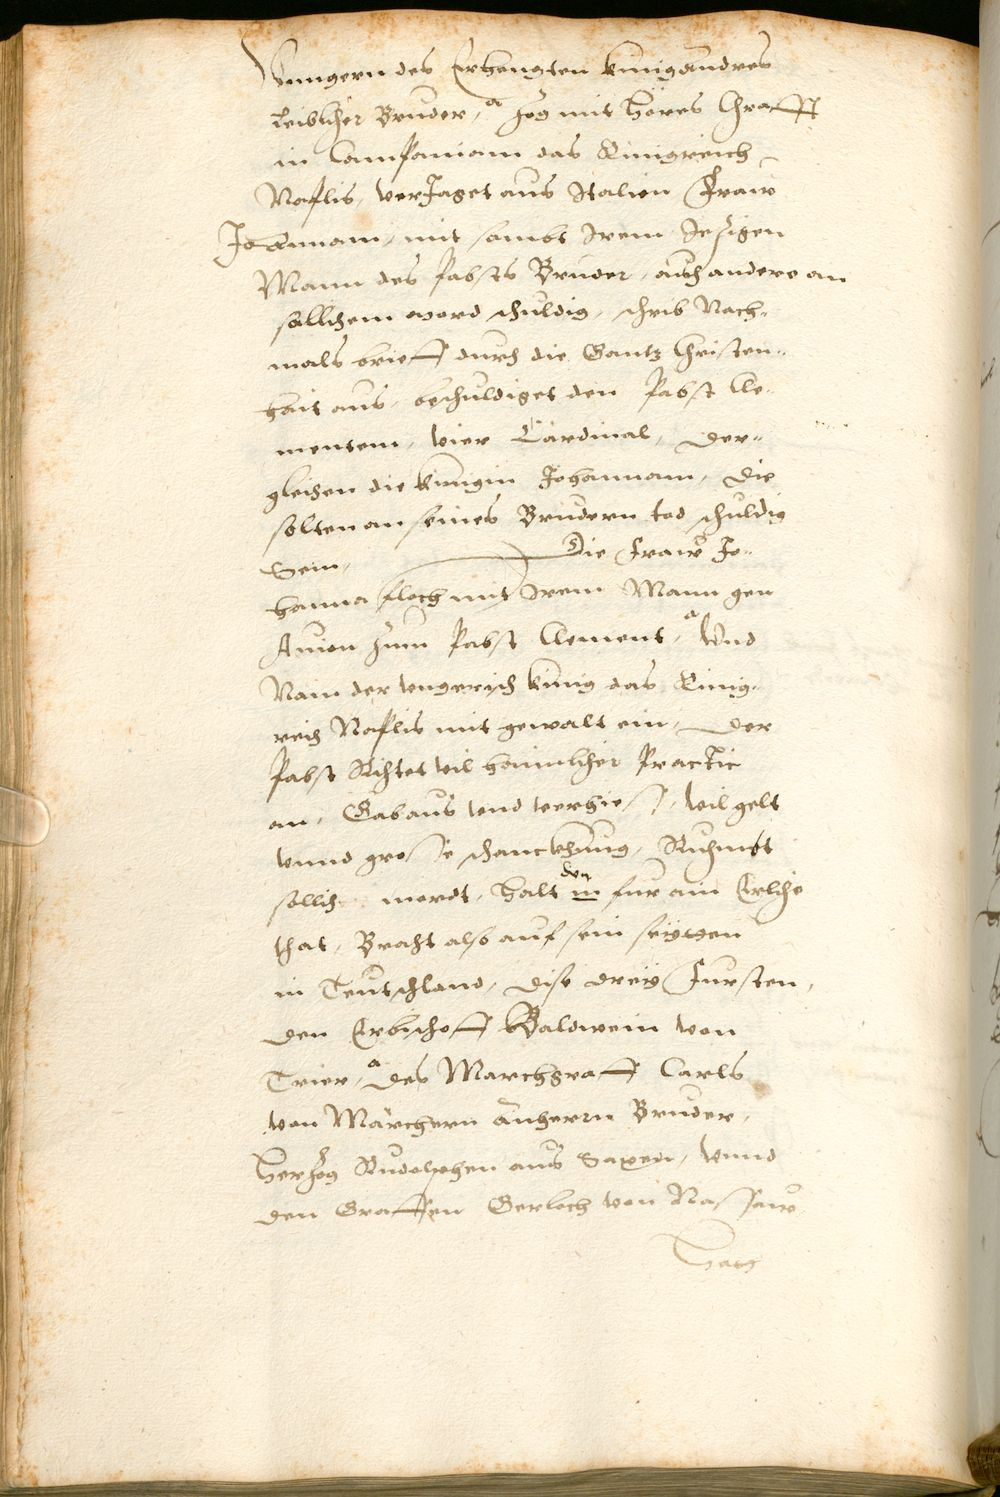 Vnngern des Erhengten kunig Andres
Leiblicher Bruder, zog mit Höres Crafft
in Campaniam das Künigreich
Naplis, verJaget aus Italien Fraw
Johannam, mit sambt Irem Jezigen
Mann des Pabsts Bruder, auch andere an
sollichem mord schuldig, schrib Nach-
mals brieff durch die Gantz Christen-
hait aus, beschuldiget den Pabst Cle-
mentem, vier Cardinal, Der-
gleichen die künigin Johannam, Die
solten an seines Brudern tod schuldig
Sein, Die Fraw Jo-
hanna floch mit Irem Mann gen
Auion zum Pabst Clement, Vnd
Nam der vngerisch künig das Künig-
reich Naplis mit gewalt ein, Der
Pabst Richtet vil haimlicher Practic
an, Gab aus vnd verhiess, vil gelt
vnnd grosse schanckhung, Rhumbt
sollich mordt, Halt den in fur ain Erliche
that, Bracht also auf sein seytten
in Teutschland, dise drey Fursten,
den Erbischoff Baldwein von
Trier, des Marchgraff Carls
von Märchern änherrn Bruder,
Herzog Rudolphen aus Saxen, vnnd
den Graffen Gerlach von Nassaw